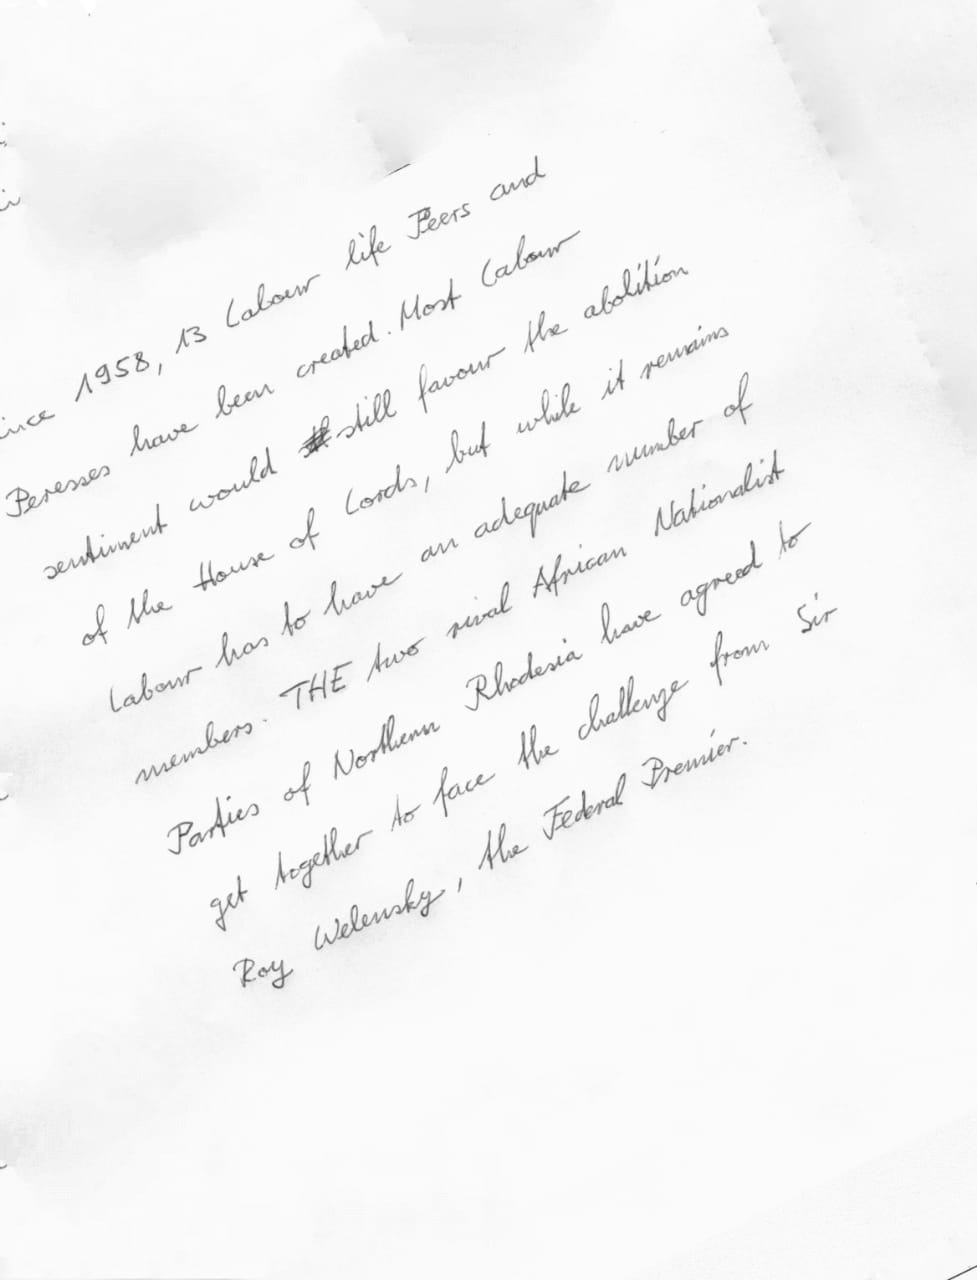 ince 1958, 13 Labour life Peers and
Peresses have been created. Most Labour
sentiment would still favour the abolition
of the House of Lords, but while it remains
Labour has to have an adequate number of
members. THE two rival African Nationalist
Parties of Northern Rhodesia have agreed to
get together to face the challenge from Sir
Roy Welensky, the Federal Premier.